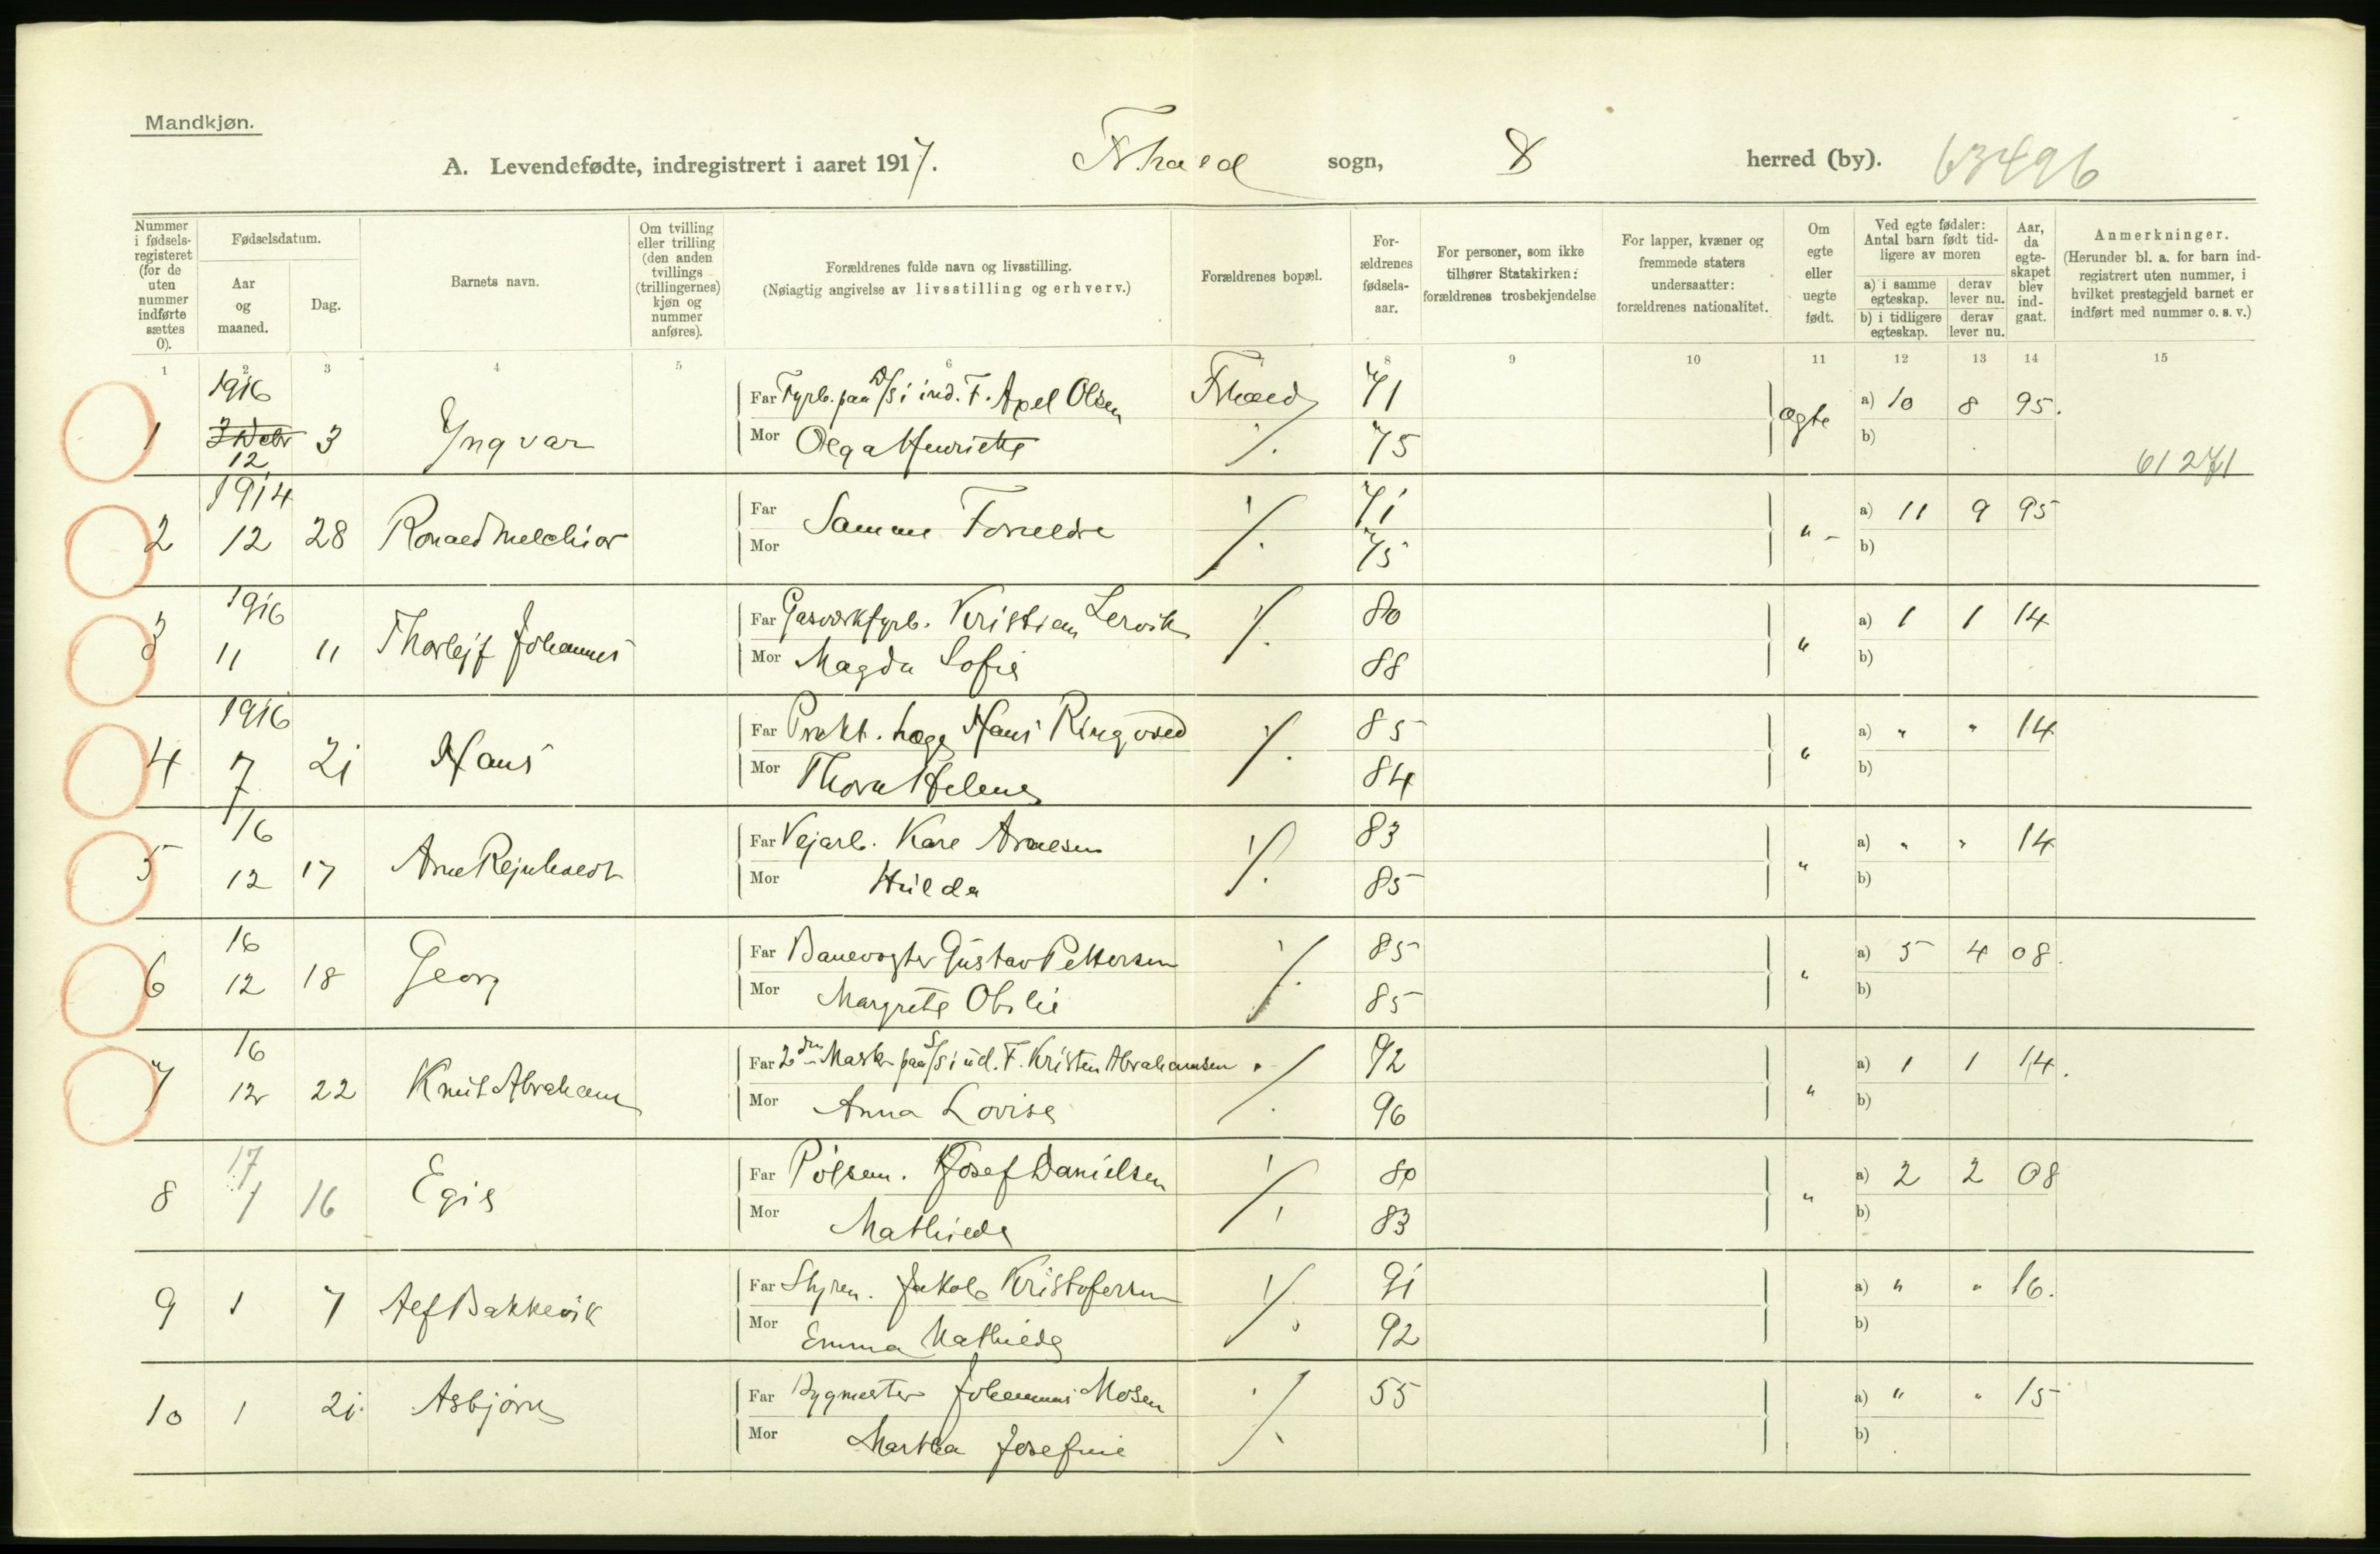 Mandkjøn.
A. Levendefødte, indregistrert i aaret 1917. F.hald sogn, herred (by). 63496
Nummer i fødsels-registeret (for de uten nummer indførte sættes 0).
Fødselsdatum.
Aar og maaned.
Dag.
Barnets navn.
Om tvilling eller trilling (den anden tvillings (trillingernes) kjøn og nummer anføres).
Forældrenes fulde navn og livsstilling.
(Nøiagtig angivelse av livsstilling og erhverv.)
Forældrenes bopæl.
For-ældrenes fødsels-aar.
For personer, som ikke tilhører Statskirken: forældrenes trosbekjendelse
For lapper, kvæner og fremmede staters undersaatter: forældrenes nationalitet.
Om egte eller uegte født.
Ved egte fødsler: Antal barn født tid-ligere av moren
a) i samme egteskap. derav lever nu.
b) i tidligere egteskap. derav lever nu.
Aar, da egte-skapet blev ind-gaat.
Anmerkninger.
(Herunder bl. a. for barn ind-registrert uten nummer, i hvilket prestegjeld barnet er indført med nummer o. s. v.)
1 2 3 4 5 6 8 9 10 11 12 13 14 15
1916 Far Fyrb. paa D/S i ind. F. Axel Olsen F.hald 71 a) 10 8 95.
1 12 3 Yngvar Mor Olga Henriette ./. 75 egte b) 61271
1914 Far Samme Forældre ./. 71 a) 11 9 95
2 12 28 Ronald Melchior Mor 75 " - b)
1916 Far Gasverkfyrb. Kristian Lervik ./. 80 a) 1 1 14
3 11 11 Thorlejf Johannes Mor Magda Sofie 88 " b)
1916 Far Prakt. læge Hans Ringvold ./. 85 a) " " 14
4 7 21 Hans Mor Thora Helene 84 " b)
16 Far Vejarb. Karl Arnesen ./. 83 a) " " 14
5 12 17 Arne Rejnholdt Mor Hilda 85 " b)
16 Far Banevogter Gustav Pettersen ./. 85 a) 5 4 08.
6 12 18 Georg Mor Margrete Otilie 85 " b)
16 Far 2den Mask. paa S/S i ud. F. Kristen Abrahamsen ./. 92 a) 1 1 14.
7 12 22 Knut Abraham Mor Anna Lovise 96 " b)
17 Far Pølsem. Josef Danielsen ./. 80 a) 2 2 08
8 1 16 Egil Mor Mathilde 83 " b)
Far Styrm. Jakob Kristofersen ./. 91 a) " " 16.
9 1 7 Alf Bakkevik Mor Emma Mathilde 92 b)
Far Bygmester Johannes Mosen ./. 55 a) " " 15
10 1 21. Asbjørn Mor Martha Josefine b)